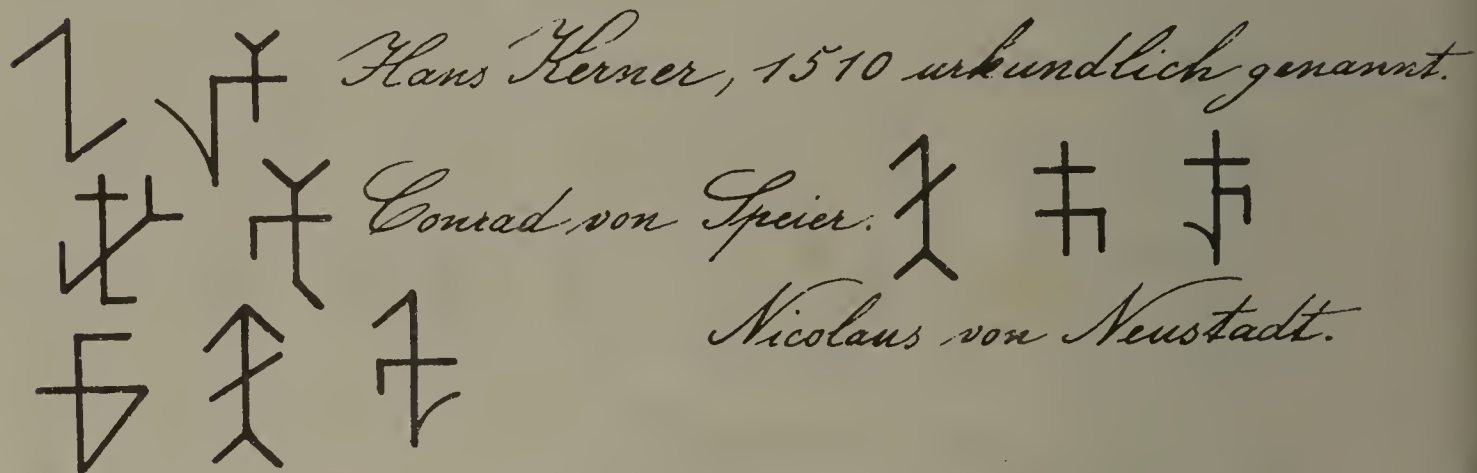 Hans Kerner, 1510 urkundlich genannt.
Conrad von Speier.
Nicolaus von Neustadt.